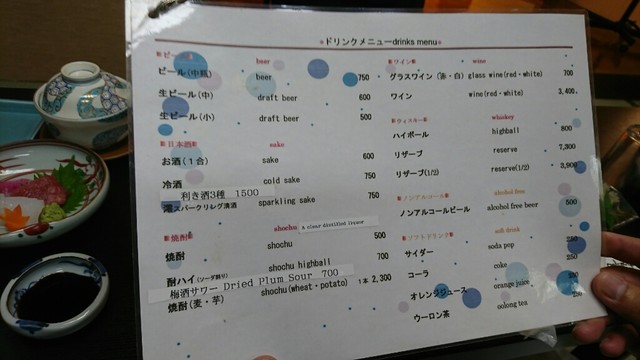 *ドリンクメニューdrinks menu*
*ビール* beer
ビール(中瓶) beer 750
生ビール(中) draft beer 600
生ビール(小) draft beer 500
*日本酒* sake
お酒(1合) sake 600
冷酒 cold sake 750
利き酒3種 1500
スパークリング清酒 sparkling sake 750
*焼酎* shochu A clear distilled liquor
焼酎 shochu 500
酎ハイ(ソーダ割り) shochu highball 700
梅酒サワー Dried Plum Sour 700
焼酎(麦・芋) shochu(wheat・potato) 1本 2,300
*ワイン* wine
グラスワイン(赤・白) glass wine(red・white) 700
ワイン wine(red・white) 3,400.
*ウィスキー* whiskey
ハイボール highball 800
リザーブ reserve 7,300
リザーブ(1/2) reserve(1/2) 3,900
*ノンアルコール* alcohol free
ノンアルコールビール alcohol free beer 500
*ソフトドリンク* soft drink
サイダー soda pop 250
コーラ coke 250
オレンジジュース orange juice 250
ウーロン茶 oolong tea 250